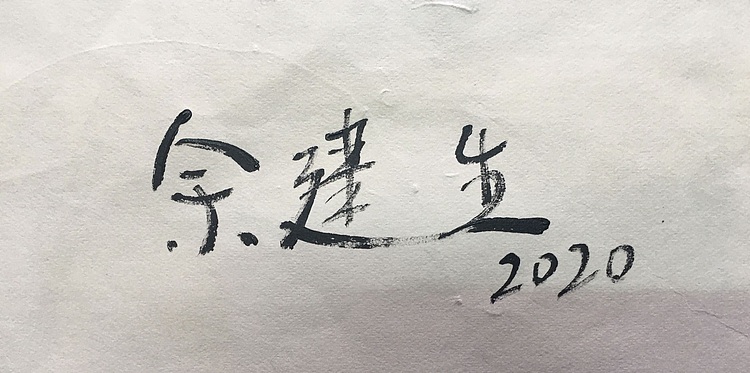 余建生
2020